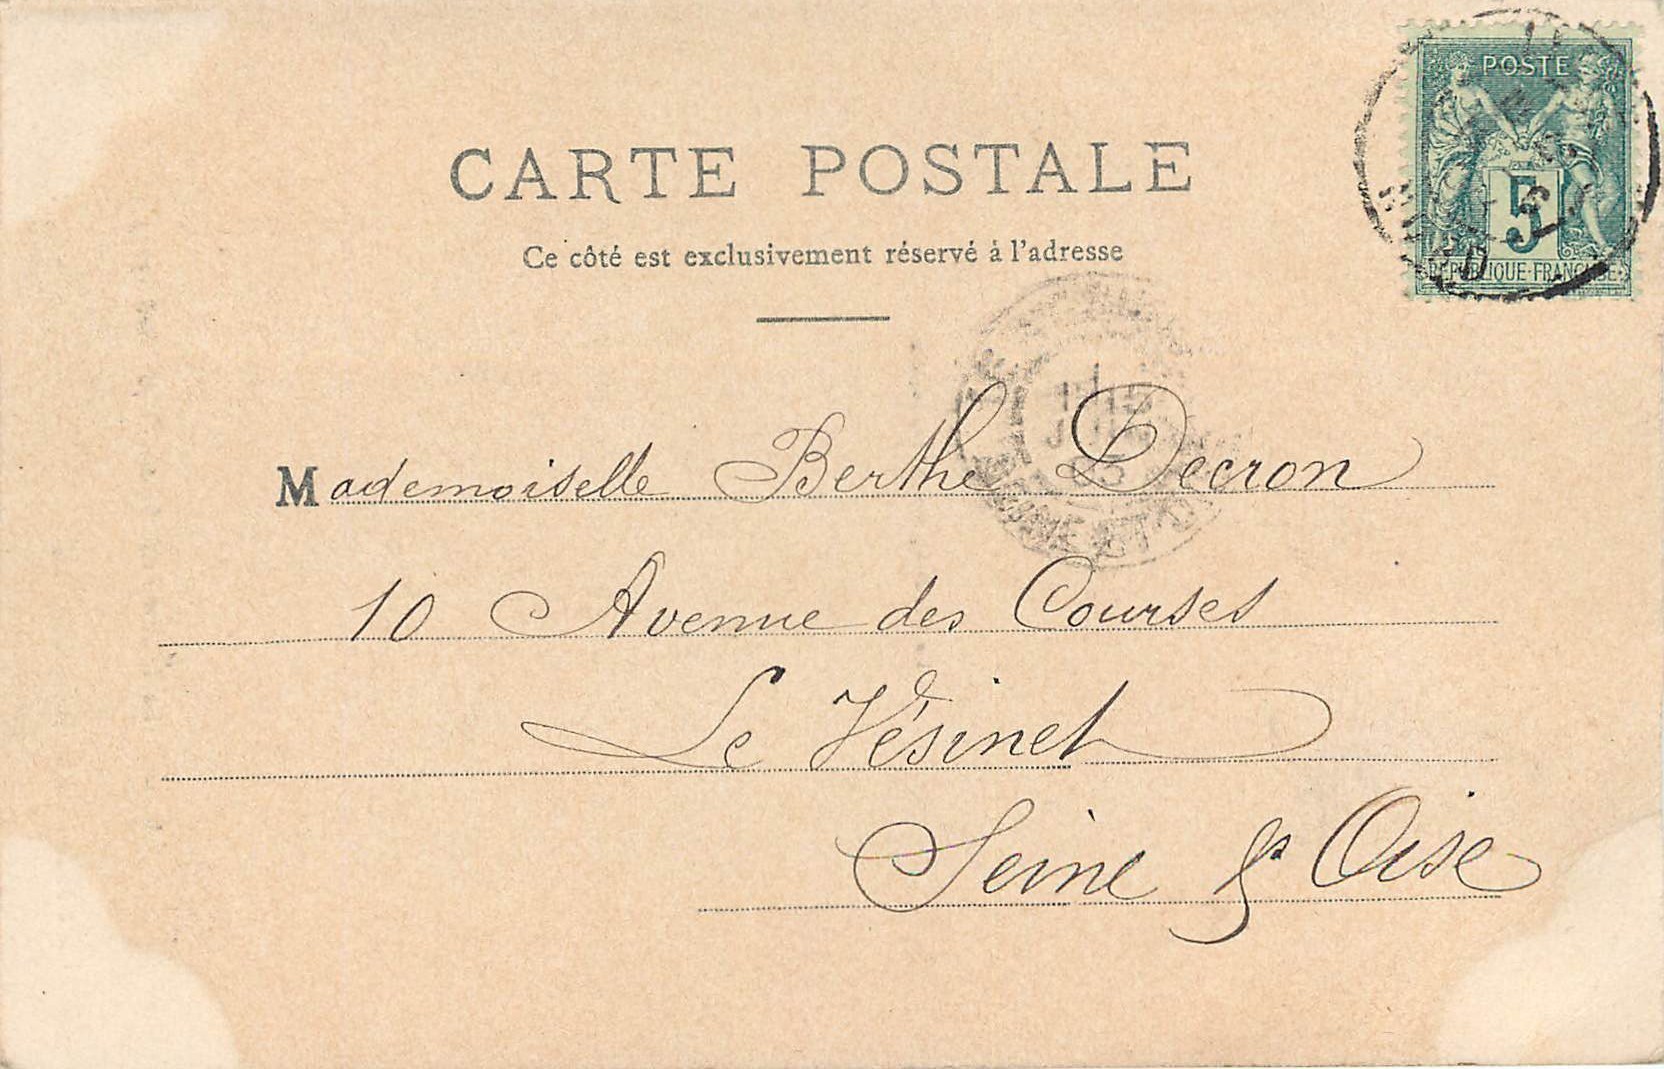 POSTE
5
RÉPUBLIQUE FRANÇAISE
CARTE POSTALE
Ce côté est exclusivement réservé à l'adresse
Mademoiselle Berthe Decron
10 Avenue des Courses
Le Vésinet
Seine & Oise